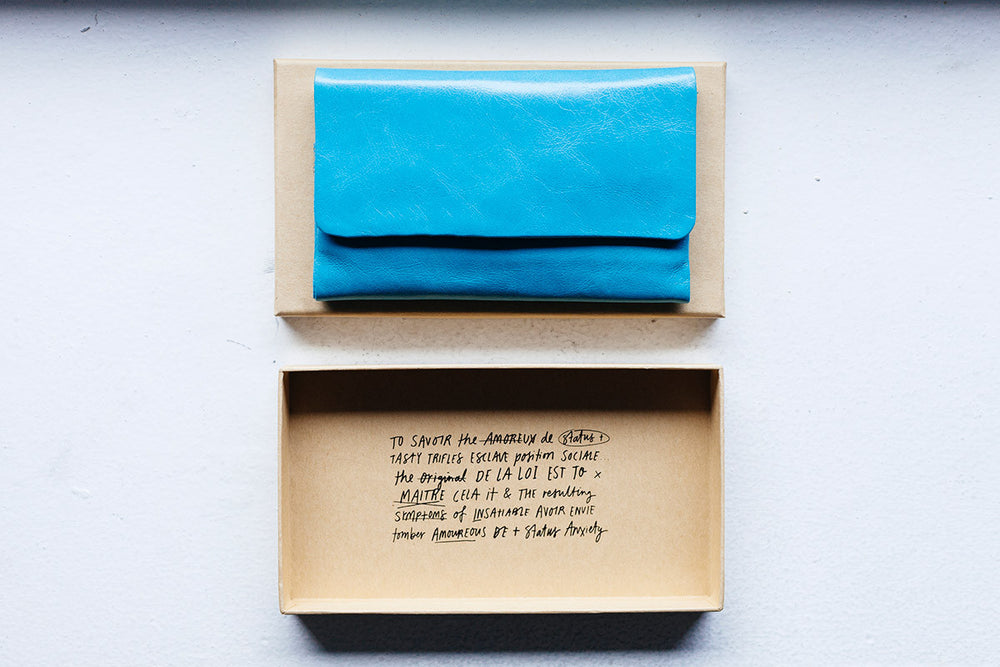 TO SAVOIR the AMOREUX de Status +
TASTY TRIFLES ESCLAVE position SOCIALE...
the original DE LA LOI EST TO x
MAITRE CELA it & THE resulting
SYMPTOMS of INSATIABLE AVOIR ENVIE
tomber AMOUREOUS DE + Status Anxiety